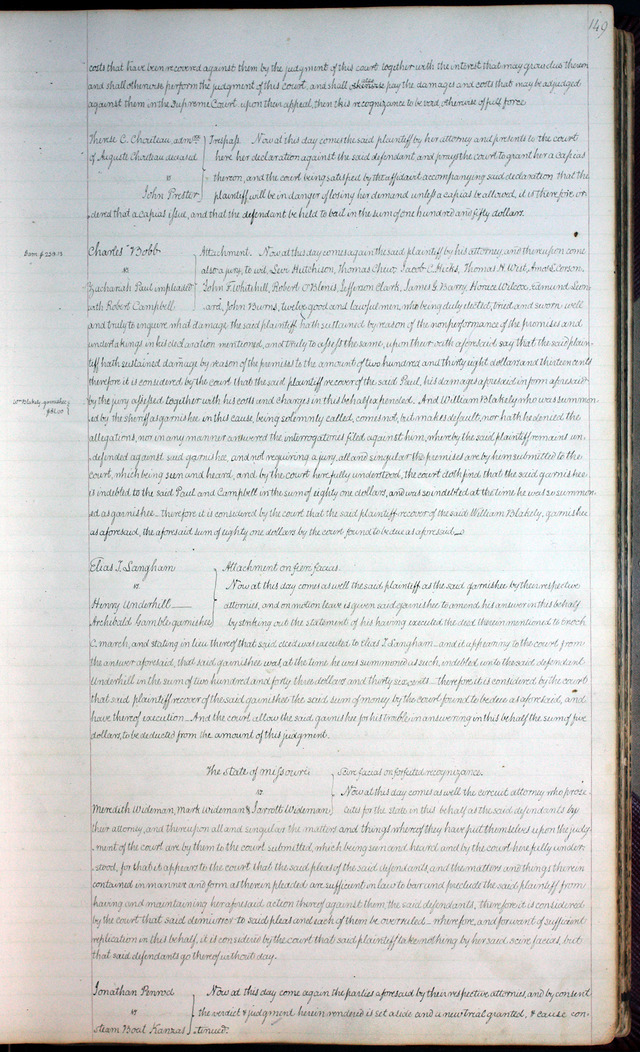 149
costs that have been recovered against them by the judgment of this court together with the interest that may grow due thereon
and shall otherwise perform the judgment of this court, and shall also pay the damages and costs that may be adjudged
against them in the Supreme Court upon their appeal, then this recognizance to be void otherwise of full force
Therese C. Chouteau, admrx } Trespass. Now at this day comes the said plaintiff by her attorney and presents to the court
of Auguste Chouteau deceased } here her declaration against the said defendant and prays the court to grant her a capias
vs } thereon, and the court being satisfied by the affidavit accompanying said declaration that the
John Prester } plaintiff will be in danger of losing her demand unless a capias be allowed, it is therefore or-
dered that a capias issue, and that the defendant be held to bail in the sum of one hundred and fifty dollars.
Dam. $238.13
Charles Bobb } Attachment. Now at this day comes again the said plaintiff by his attorney, and thereupon come
vs } also a jury, to wit, Levi Hutchison, Thomas Chew, Jacob C. Hicks, Thomas H. West, Amos L. Corson,
Zachariah Paul impleaded } John F. Whitehill, Robert O'Blenis, Jefferson Clark, James G. Barry, Horace Wilcox, Edmund Leon-
with Robert Campbell } ard, John Burns, twelve good and lawful men, who being duly elected, tried and sworn well
and truly to enquire what damage the said plaintiff hath sustained by reason of the nonperformance of the promises and
undertakings in his declaration mentioned, and truly to assess the same, upon their oath aforesaid say that the said plain-
tiff hath sustained damage by reason of the premises to the amount of two hundred and thirty eight dollars and thirteen cents
therefore it is considered by the court that the said plaintiff recover of the said Paul, his damages aforesaid in form aforesaid
Wm Blakely, garnishee }
$81.00 }
by the jury assessed together with his costs and charges in this behalf expended. And William Blakely who was summon
ed by the sheriff as garnishee in this cause, being solemnly called, comes not, but makes default, nor hath he denied the
allegations, nor in any manner answered the interrogatories filed against him, whereby the said plaintiff remains un-
defended against said garnishee, and not requiring a jury, all and singular the premises are by him submitted to the
court, which being seen and heard, and by the court here fully understood, the court doth find that the said garnishee
is indebted to the said Paul and Campbell in the sum of eighty one dollars, and was so indebted at the time he was so summon-
ed as garnishee. Therefore it is considered by the court that the said plaintiff recover of the said William Blakely, garnishee
as aforesaid, the aforesaid sum of eighty one dollars by the court found to be due as aforesaid
Elias T. Langham } Attachment on fieri facias.
vs } Now at this day comes as well the said plaintiff as the said garnishee by their respective
Henry Underhill } attornies, and on motion leave is given said garnishee to amend his answer in this behalf
Archibald Gamble garnishee } by striking out the statement of his having executed the deed therein mentioned to Enoch
C. March, and stating in lieu thereof that said deed was executed to Elias T. Langham and it appearing to the court from
the answer aforesaid, that said garnishee was at the time he was summoned as such, indebted unto the said defendant
Underhill in the sum of two hundred and forty three dollars and thirty six cents. therefore it is considered by the court
that said plaintiff recover of the said garnishee the said sum of money by the court found to be due as aforesaid, and
have thereof execution. And the court allow the said garnishee for his trouble in answering in this behalf the sum of five
dollars, to be deducted from the amount of this judgment.
The state of missouri } Scire facias on forfeited recognizance.
vs } Now at this day comes as well the circuit attorney who prose-
Meredith Wideman, mark wideman & Jarrott Wideman } cutes for the state in this behalf as the said defendants by
their attorney, and thereupon all and singular the matters and things whereof they have put themselves upon the judg-
ment of the court are by them to the court submitted, which being seen and heard, and by the court here fully under-
stood, for that it appears to the court that the said pleas of the said defendants, and the matters and things therein
contained in manner and form as therein pleaded are sufficient in law to bar and preclude the said plaintiff from
having and maintaining her aforesaid action thereof against them, the said defendants, therefore it is considered
by the court that said demurrer to said pleas and each of them be overruled. wherefore, and for want of sufficient
replication in this behalf, it is considered by the court that said plaintiff take nothing by her said scire facias, but
that said defendants go thereof without day.
Jonathan Penrod } Now at this day come again the parties aforesaid by their respective attornies, and by consent
vs } the verdict & judgment herein rendered is set aside and a new trial granted, & cause con-
steam Boat Kanzas } tinued.